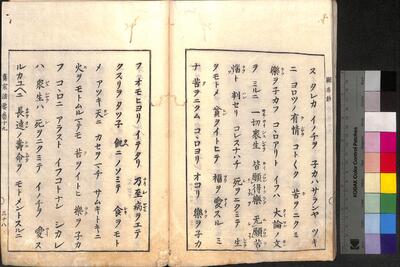 ス タレカ イノチヲ 子カハサランヤ ツキ
ニ ヨロツノ 有情 コトノク 苦ヲニクミ
樂ヲ子カフ コヽロアリト イフハ 大論ノ文
ヲ ミルニ 一切衆生 皆願得樂 无願苦
惱ト 判セリ コレスナハチ 死ヲニクミテ 生
タモトメ 貧ヲイトヒテ 福ヲ愛スル ミ
ナ 苦ヲニクム コヽロヨリ オコリ 樂ヲ子カ
フ オモヒヨリ イテタリ 乃至 病ヲエテ
クスリヲ タツ子 飢ニノソミテ 食ヲモト
メ アツキ天ニ カセヲマチ サムキトキニ
火ヲモトムルマテモ 苦ヲイトヒ 樂ヲ子カ
フ コヽロニ アラスト イフコトナシ シカレ
ハ 衆生ハ 死ヲニクミテ イノチヲ 愛ス
ルカユヘニ 長遠ノ壽命ヲ モトメントスルニ
眞宗法要卷十九
三十八
KODAK Color Control Patches